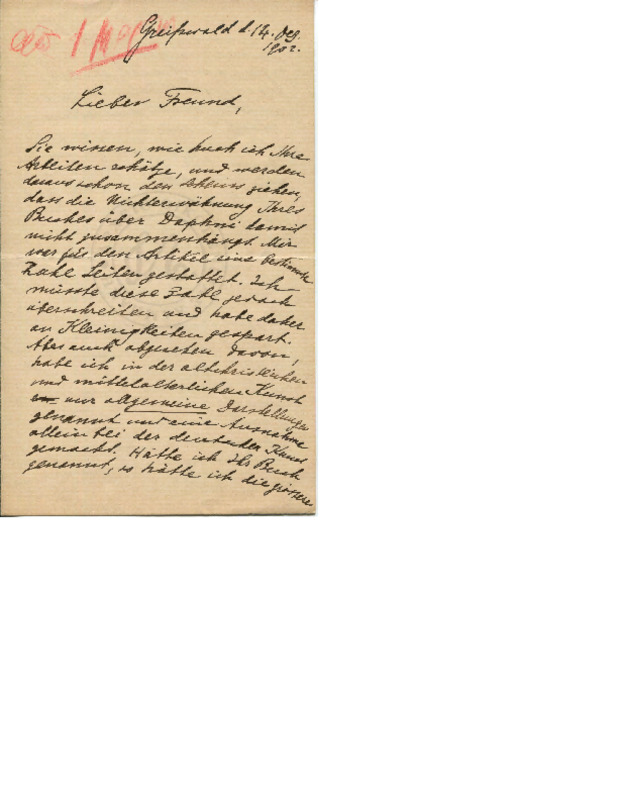 Greifswald d. 14. Dez.
1902.
Lieber Freund,
Sie wissen, wie hoch ich Ihre
Arbeiten schätze, und werden
daraus schon den Schluss ziehen,
dass die Nichterwähnung Ihres
Buches über Daphni damit
nicht zusammenhängt. Mir
war für den Artikel eine bestimmte
Zahl Seiten gestattet. Ich
müsste diese Zahl
überschreiten und habe daher
an Kleinigkeiten gespart.
Aber auch abgesehen davon,
habe ich in der altchristlichen
und mittelalterlichen Kunst
nur allgemeine Darstellungen
genannt und eine Ausnahme
allein bei der deutschen Kunst
gemacht. Hätte ich Ihr Buch
genannt, so hätte ich die grössere